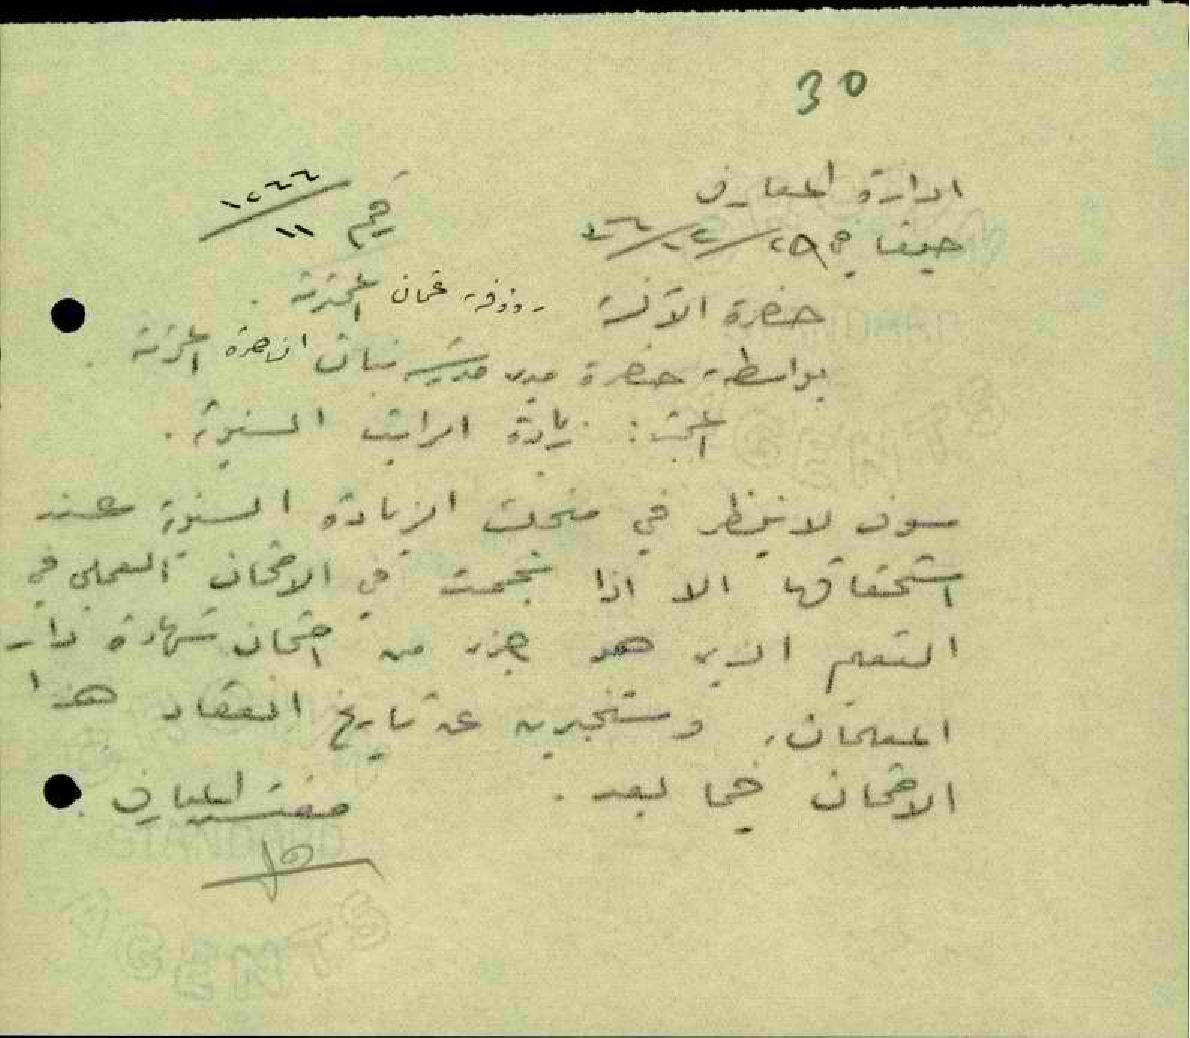 30
ادارة المعارف
حيفا في
رقم ١٢٦٦/١١
حضرة الآنسة رؤوفة عثمان المحترمة .
بواسطة حضرة مديرة مدرسة بنات الناصرة المحترمة .
المبحث : زيادة الراتب السنوية .
سوف لا ينظر في منحك الزيادة السنوية عند
استحقاقها الا اذا نجحت في الامتحان العملي في
التعليم الذي هو جزء من امتحان شهادة دار
المعلمات ، وستخبرين عن تاريخ انعقاد هذا
الامتحان فيما بعد .
مفتش المعارف
STANDARD
AGENTS